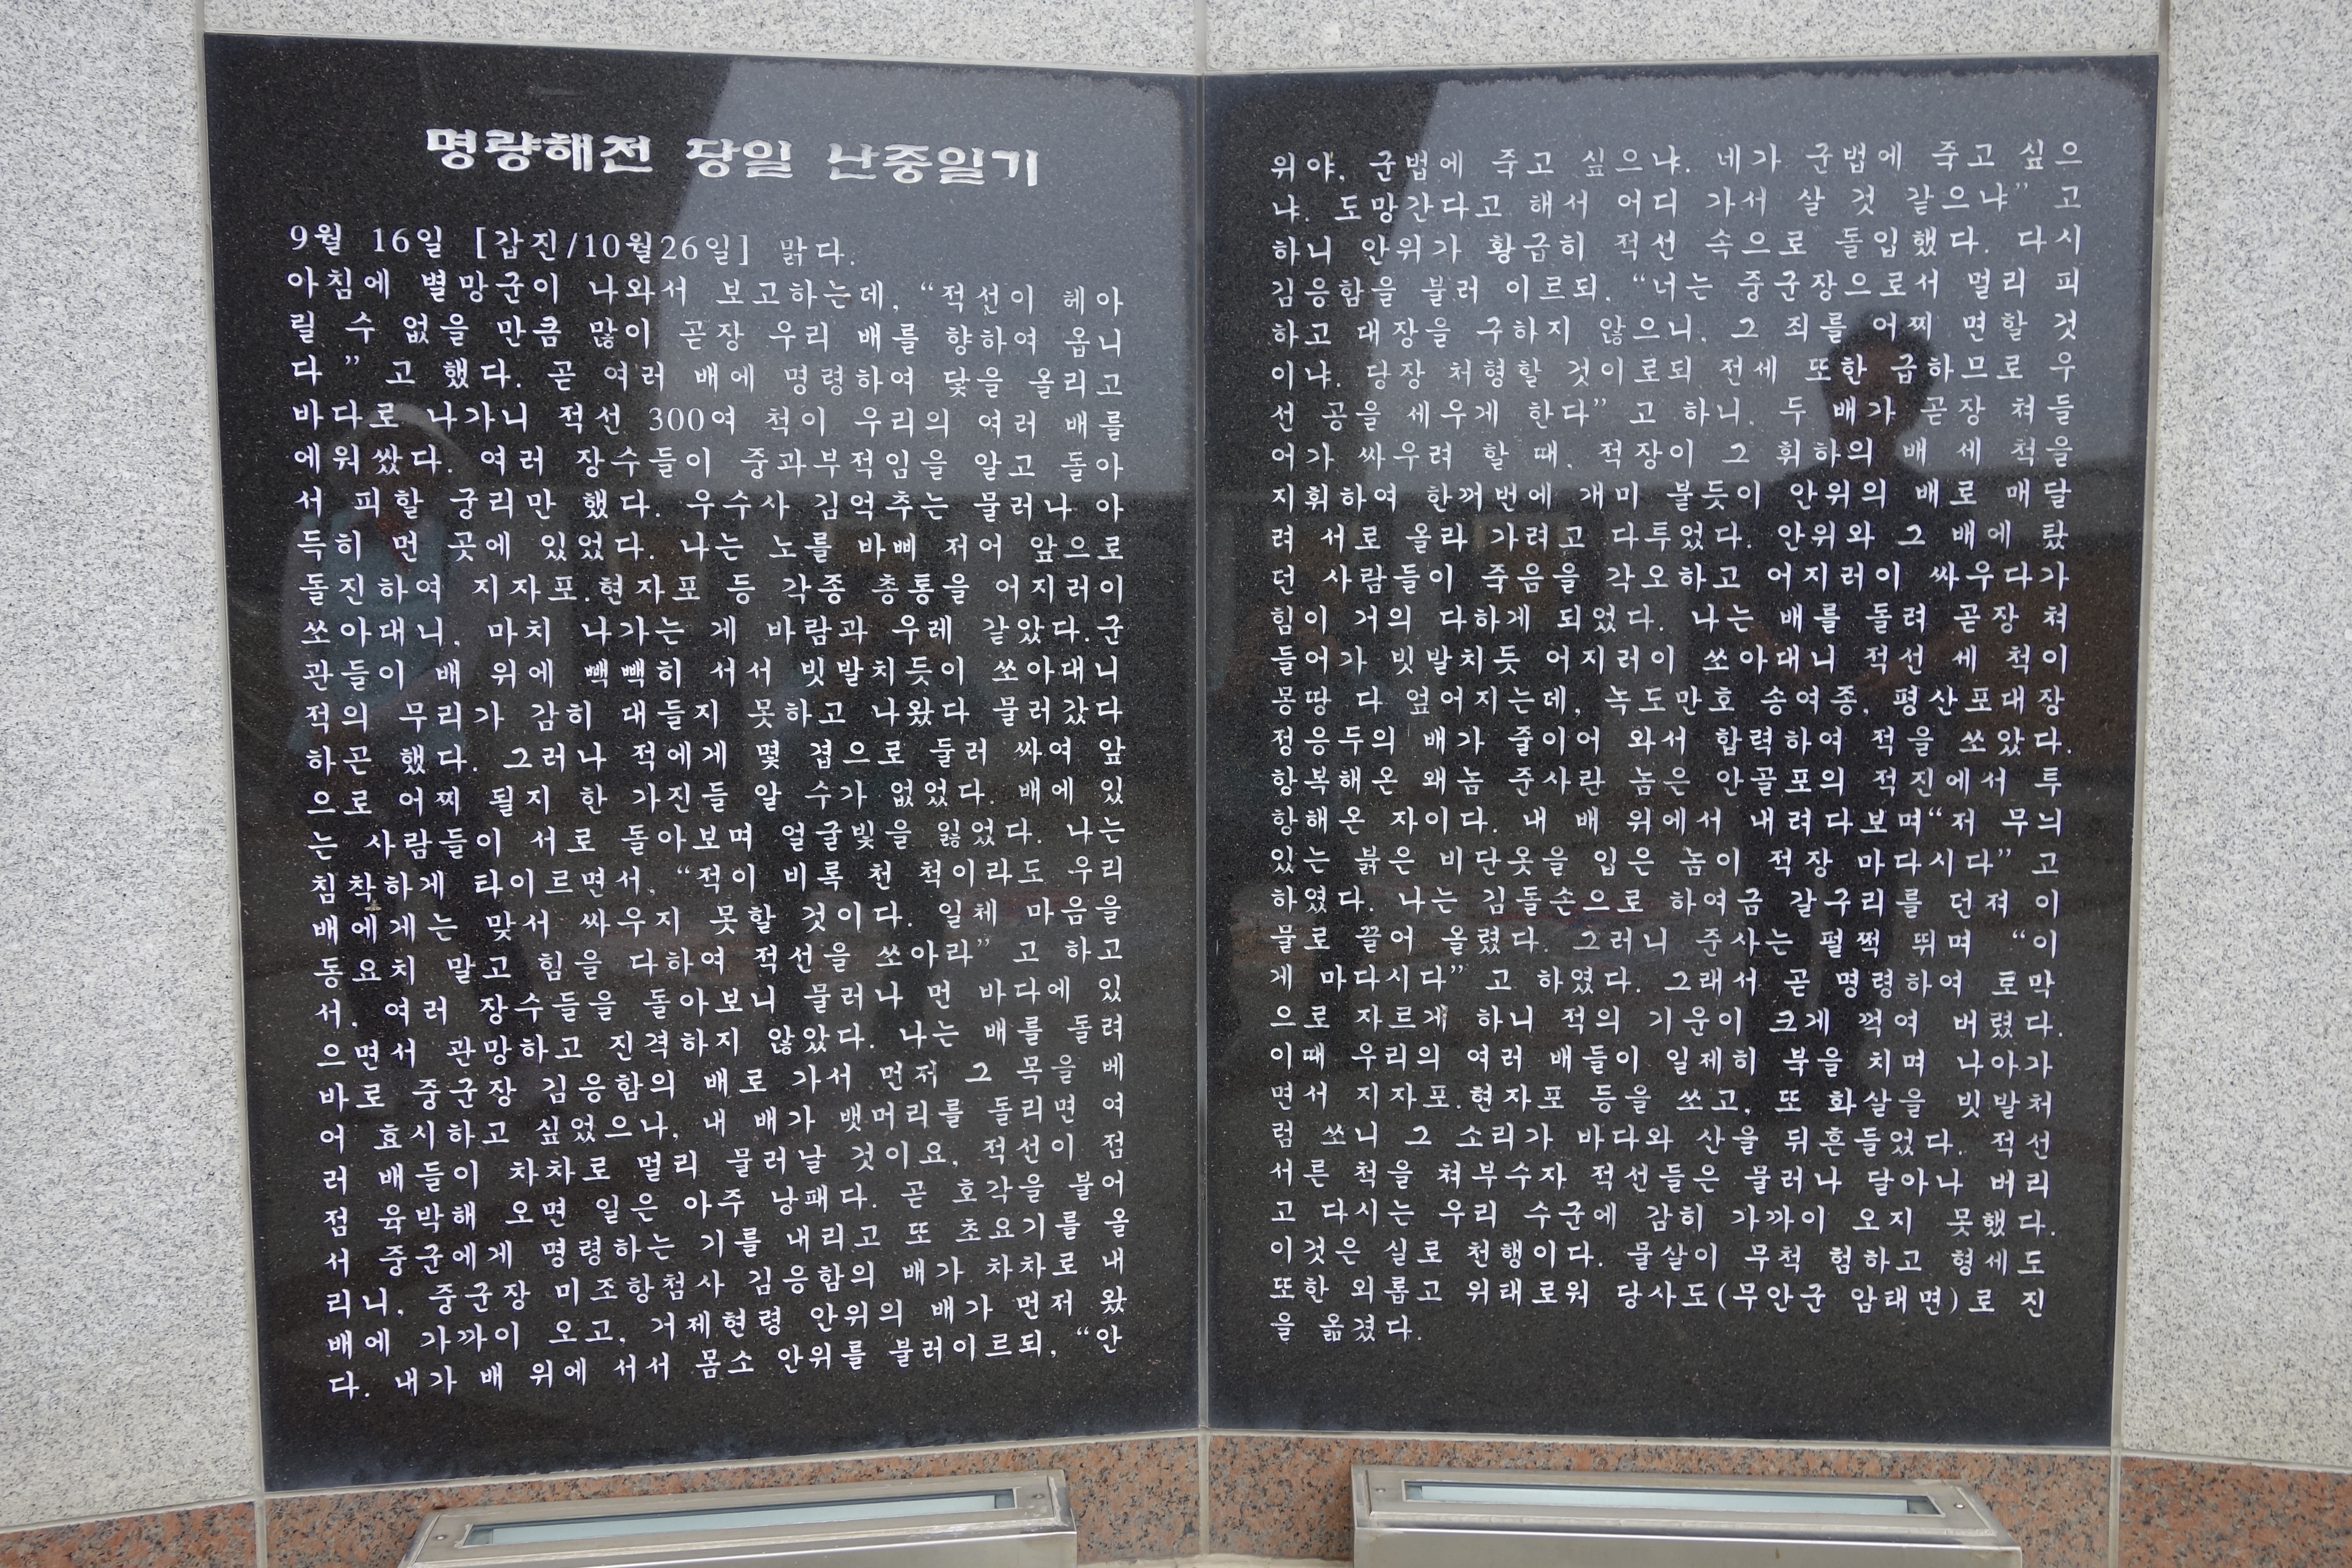 명량해전 당일 난중일기
9월 16일 [갑진/10월26일] 맑다.
아침에 별망군이 나와서 보고하는데, “적선이 헤아
릴 수 없을 만큼 많이 곧장 우리 배를 향하여 옵니
다 ” 고 했다. 곧 여러 배에 명령하여 닻을 올리고
바다로 나가니 적선 300여 척이 우리의 여러 배를
에워쌌다. 여러 장수들이 중과부적임을 알고 돌아
서 피할 궁리만 했다. 우수사 김억추는 물러나 아
득히 먼 곳에 있었다. 나는 노를 바삐 저어 앞으로
돌진하여 지자포.현자포 등 각종 총통을 어지러이
쏘아대니, 마치 나가는 게 바람과 우레 같았다.군
관들이 배 위에 빽빽히 서서 빗발치듯이 쏘아대니
적의 무리가 감히 대들지 못하고 나왔다 물러갔다
하곤 했다. 그러나 적에게 몇 겹으로 둘러 싸여 앞
으로 어찌 될지 한 가진들 알 수가 없었다. 배에 있
는 사람들이 서로 돌아보며 얼굴빛을 잃었다. 나는
침착하게 타이르면서, “적이 비록 천 척이라도 우리
배에게는 맞서 싸우지 못할 것이다. 일체 마음을
동요치 말고 힘을 다하여 적선을 쏘아라” 고 하고
서, 여러 장수들을 돌아보니 물러나 먼 바다에 있
으면서 관망하고 진격하지 않았다. 나는 배를 돌려
바로 중군장 김응함의 배로 가서 먼저 그 목을 베
어 효시하고 싶었으나, 내 배가 뱃머리를 돌리면 여
러 배들이 차차로 멀리 물러날 것이요, 적선이 점
점 육박해 오면 일은 아주 낭패다. 곧 호각을 불어
서 중군에게 명령하는 기를 내리고 또 초요기를 올
리니, 중군장 미조항첨사 김응함의 배가 차차로 내
배에 가까이 오고, 거제현령 안위의 배가 먼저 왔
다. 내가 배 위에 서서 몸소 안위를 불러이르되, “안
위야, 군법에 죽고 싶으냐. 네가 군법에 죽고 싶으
냐. 도망간다고 해서 어디 가서 살 것 같으냐” 고
하니 안위가 황급히 적선 속으로 돌입했다. 다시
김응함을 불러 이르되, “너는 중군장으로서 멀리 피
하고 대장을 구하지 않으니, 그 죄를 어찌 면할 것
이냐. 당장 처형할 것이로되 전세 또한 급하므로 우
선 공을 세우게 한다” 고 하니, 두 배가 곧장 쳐들
어가 싸우려 할 때, 적장이 그 휘하의 배 세 척을
지휘하여 한꺼번에 개미 붙듯이 안위의 배로 매달
려 서로 올라 가려고 다투었다. 안위와 그 배에 탔
던 사람들이 죽음을 각오하고 어지러이 싸우다가
힘이 거의 다하게 되었다. 나는 배를 돌려 곧장 쳐
들어가 빗발치듯 어지러이 쏘아대니 적선 세 척이
몽땅 다 엎어지는데, 녹도만호 송여종, 평산포대장
정응두의 배가 줄이어 와서 합력하여 적을 쏘았다.
항복해온 왜놈 준사란 놈은 안골포의 적진에서 투
항해온 자이다. 내 배 위에서 내려다보며“저 무늬
있는 붉은 비단옷을 입은 놈이 적장 마다시다” 고
하였다. 나는 김돌손으로 하여금 갈구리를 던져 이
물로 끌어 올렸다. 그러니 준사는 펄쩍 뛰며 “이
게 마다시다” 고 하였다. 그래서 곧 명령하여 토막
으로 자르게 하니 적의 기운이 크게 꺽여 버렸다.
이때 우리의 여러 배들이 일제히 북을 치며 나아가
면서 지자포.현자포 등을 쏘고, 또 화살을 빗발처
럼 쏘니 그 소리가 바다와 산을 뒤흔들었다. 적선
서른 척을 쳐부수자 적선들은 물러나 달아나 버리
고 다시는 우리 수군에 감히 가까이 오지 못했다.
이것은 실로 천행이다. 물살이 무척 험하고 형세도
또한 외롭고 위태로워 당사도(무안군 암태면)로 진
을 옮겼다.